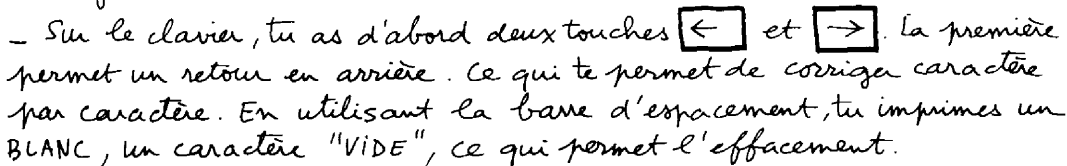 - Sur le clavier, tu as d'abord deux touches ← et →. La première
permet un retour en arrière. Ce qui te permet de corriger caractère
par caractère. En utilisant la barre d'espacement, tu imprimes un
BLANC, un caractère "VIDE", ce qui permet l'effacement.